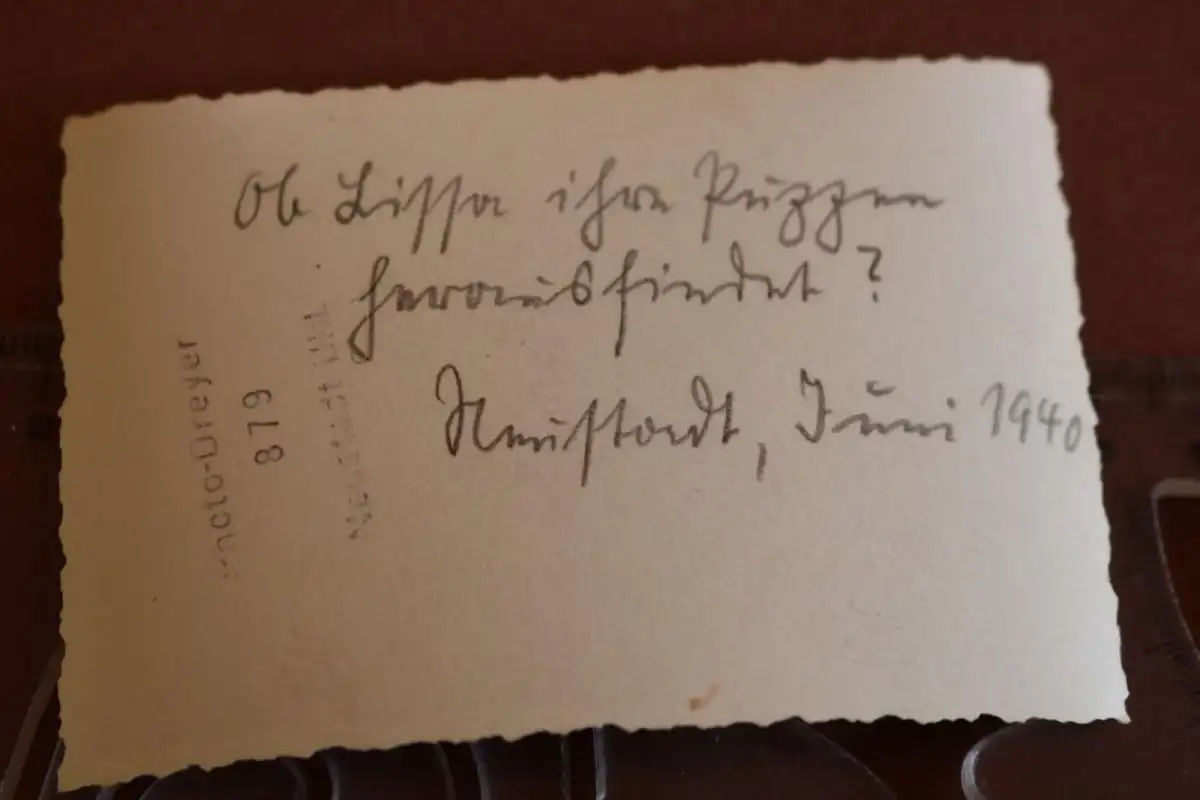 Ob Lissa ihre Puppen
herausfindet?
Neustadt, Juni 1940
Photo-Dreyer
879
Neustadt